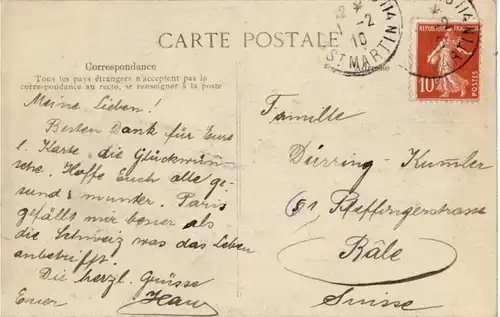 CARTE POSTALE
Correspondance
Tous les pays étrangers n'acceptent pas la
correspondance au recto, se renseigner à la poste
Meine Lieben!
Besten Dank für Eure
l. Karte die Glückwün-
sche. Hoffe Euch alle ge-
sund & munter. Paris
gefällt mir besser als
die Schweiz was das Leben
anbetrifft.
Die herzl. Grüsse
Euer
ST MARTIN
1-2
10
114
ST MARTIN
REPUBLIQUE FRANÇAISE
10c
POSTES
Familie
Dürring-Kumler
61, Pfeffingerstrasse
Bâle
Suisse